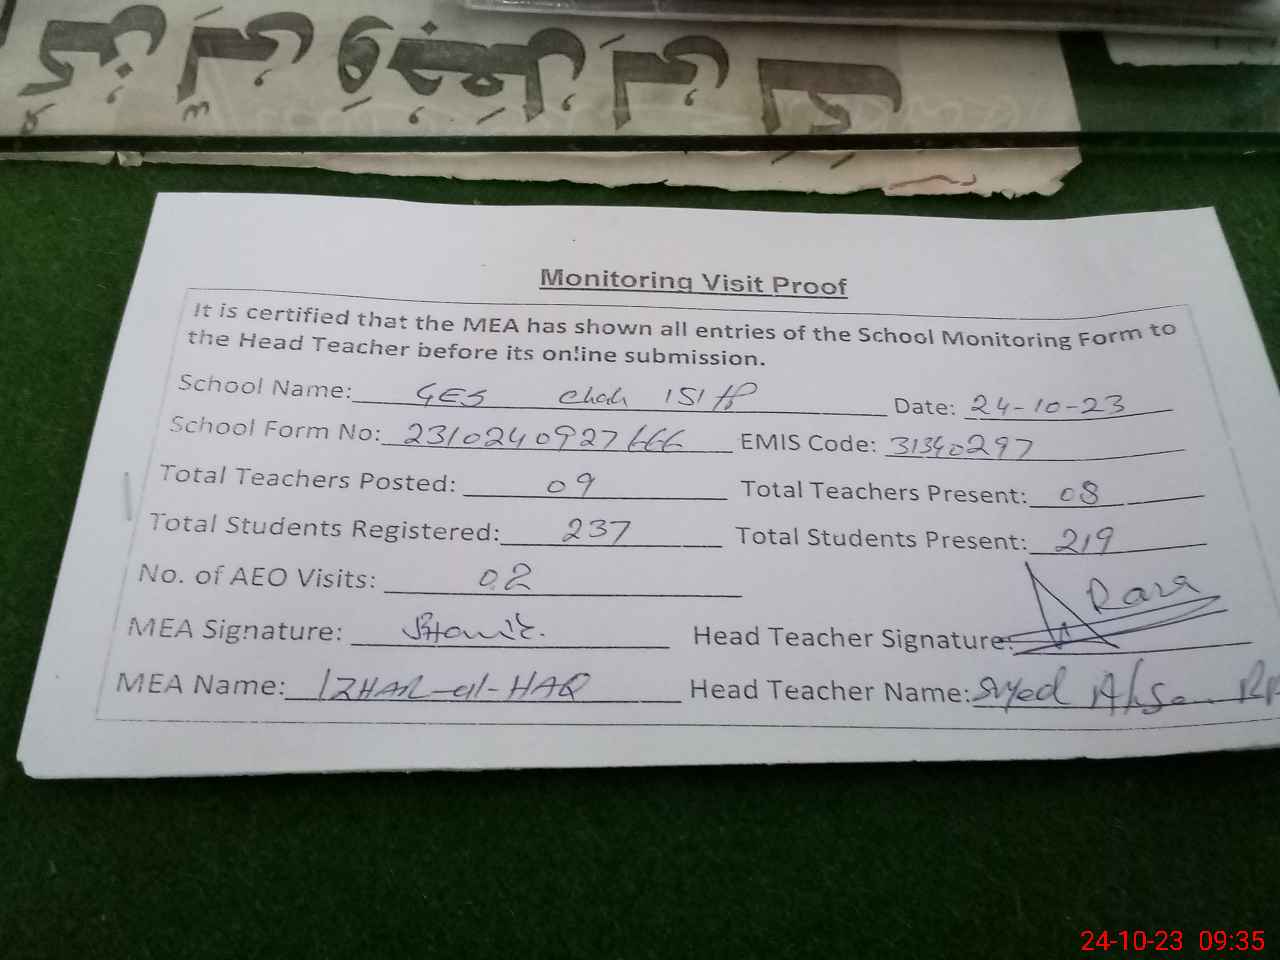 Monitoring Visit Proof
It is certified that the MEA has shown all entries of the School Monitoring Form to
the Head Teacher before its online submission.
School Name: GES Chak 151 Date: 24-10-23
School Form No: 2310240927666 EMIS Code: 31340297
Total Teachers Posted: 09 Total Teachers Present: 08
Total Students Registered: 237 Total Students Present: 219
No. of AEO Visits: 02
MEA Signature: Head Teacher Signature: Raza
MEA Name: IZHAR-ul-HAQ Head Teacher Name: Syed Ahsan
24-10-23 09:35